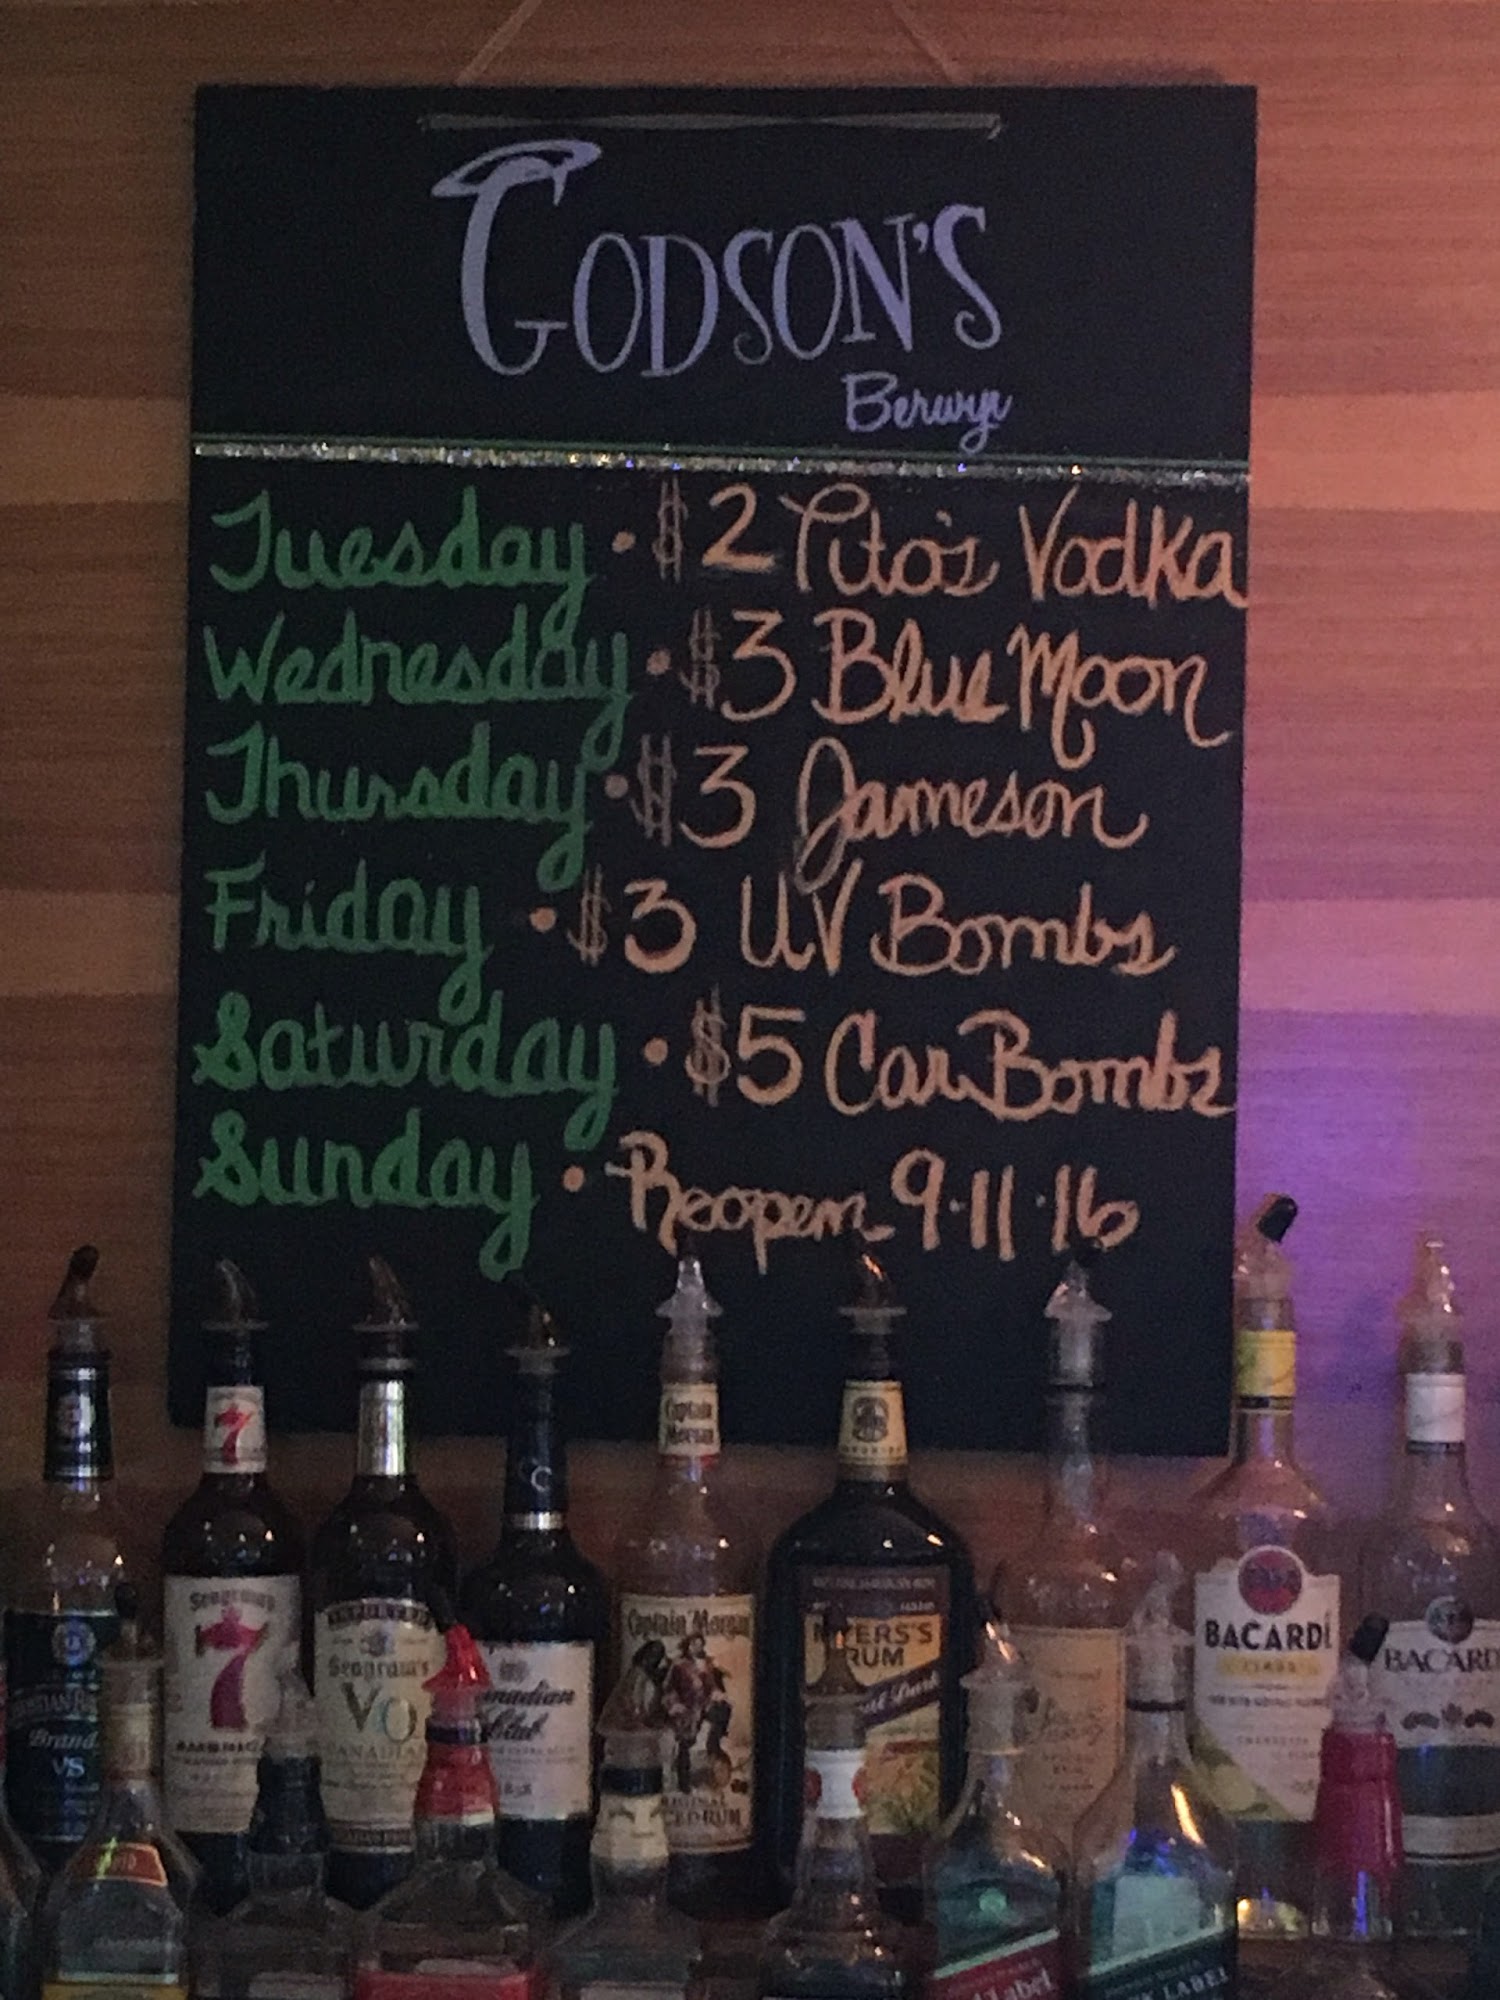 GODSON'S
Berwyn
Tuesday • $2 Tito's Vodka
Wednesday • $3 Blue Moon
Thursday • $3 Jameson
Friday • $3 UV Bombs
Saturday • $5 Car Bombs
Sunday • Reopen 9·11·16
Captain
Morgan
7
Seagram's
7
IMPORTED
Seagram's
VO
CANADIAN
Canadian
Club
Captain Morgan
ORIGINAL
SPICED RUM
MYERS'S
RUM
BACARDI
LIMÓN
BACARDI
VS
Label
LABEL